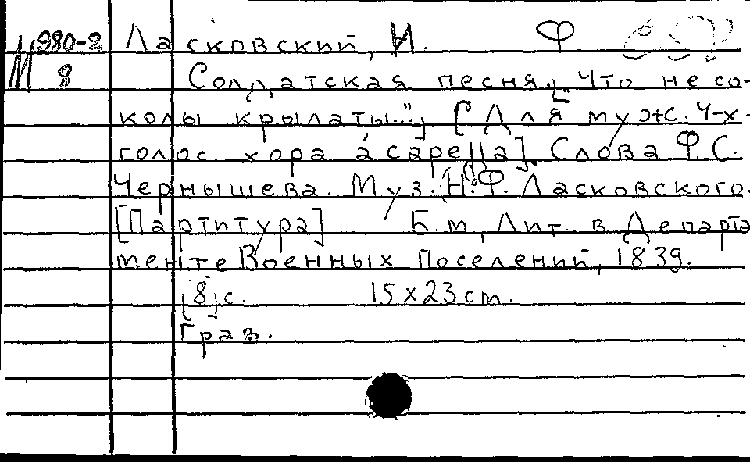 М 980-2 Ласковский, И. Ф
8 Солдатская песня „Что не со-
колы крылаты..." [Для муж. 4-х-
голос. хора a capella]. Слова Ф.С.
Чернышева. Муз. И.Ф. Ласковского.
[Партитура] Б.м., Лит. в Департа
менте Военных Поселений, 1839.
[8] с. 15x23 cm.
Грав.